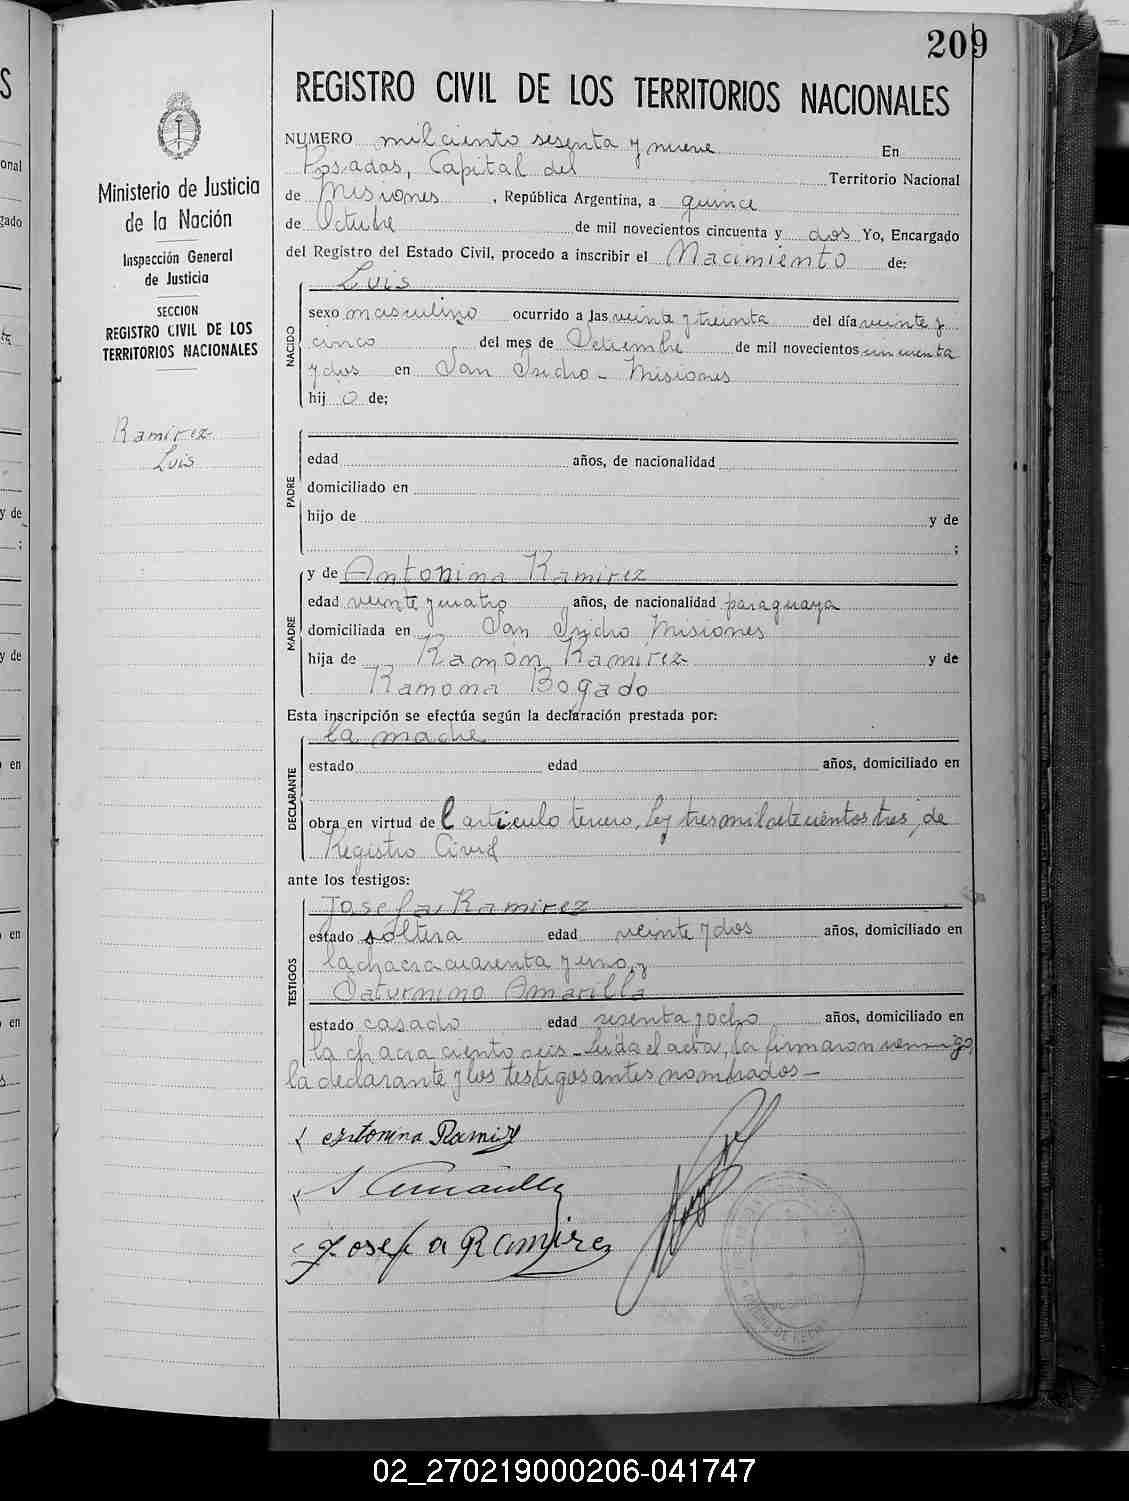 209
REGISTRO CIVIL DE LOS TERRITORIOS NACIONALES
Ministerio de Justicia
de la Nación
Inspección General
de Justicia
SECCION
REGISTRO CIVIL DE LOS
TERRITORIOS NACIONALES
Ramirez
Luis
NUMERO mil ciento sesenta y nueve En
Posadas, Capital del Territorio Nacional
de Misiones, República Argentina, a quince
de Octubre de mil novecientos cincuenta y dos Yo, Encargado
del Registro del Estado Civil, procedo a inscribir el Nacimiento de:
Luis
NACIDO
sexo masculino ocurrido a las veinte y treinta del día veinte y
cinco del mes de Setiembre de mil novecientos cincuenta
y dos en San Isidro - Misiones
hij o de;
PADRE
edad años, de nacionalidad
domiciliado en
hijo de y de
;
MADRE
y de Antonina Ramirez
edad veinte y cuatro años, de nacionalidad paraguaya
domiciliada en San Isidro Misiones
hija de Ramón Ramirez y de
Ramona Bogado
Esta inscripción se efectúa según la declaración prestada por:
la madre
DECLARANTE
estado edad años, domiciliado en
obra en virtud de l artículo tercero, Ley tres mil setecientos tres, de
Registro Civil
ante los testigos:
TESTIGOS
Josefa Ramirez
estado soltera edad veinte y dos años, domiciliado en
la chacra cuarenta y uno, y
Saturnino Amarilla
estado casado edad sesenta y ocho años, domiciliado en
la chacra ciento seis - Leída el acta, la firmaron conmigo,
la declarante y los testigos antes nombrados -
Antonina Ramirez
S Amarilla
Josefa Ramirez
02_270219000206-041747